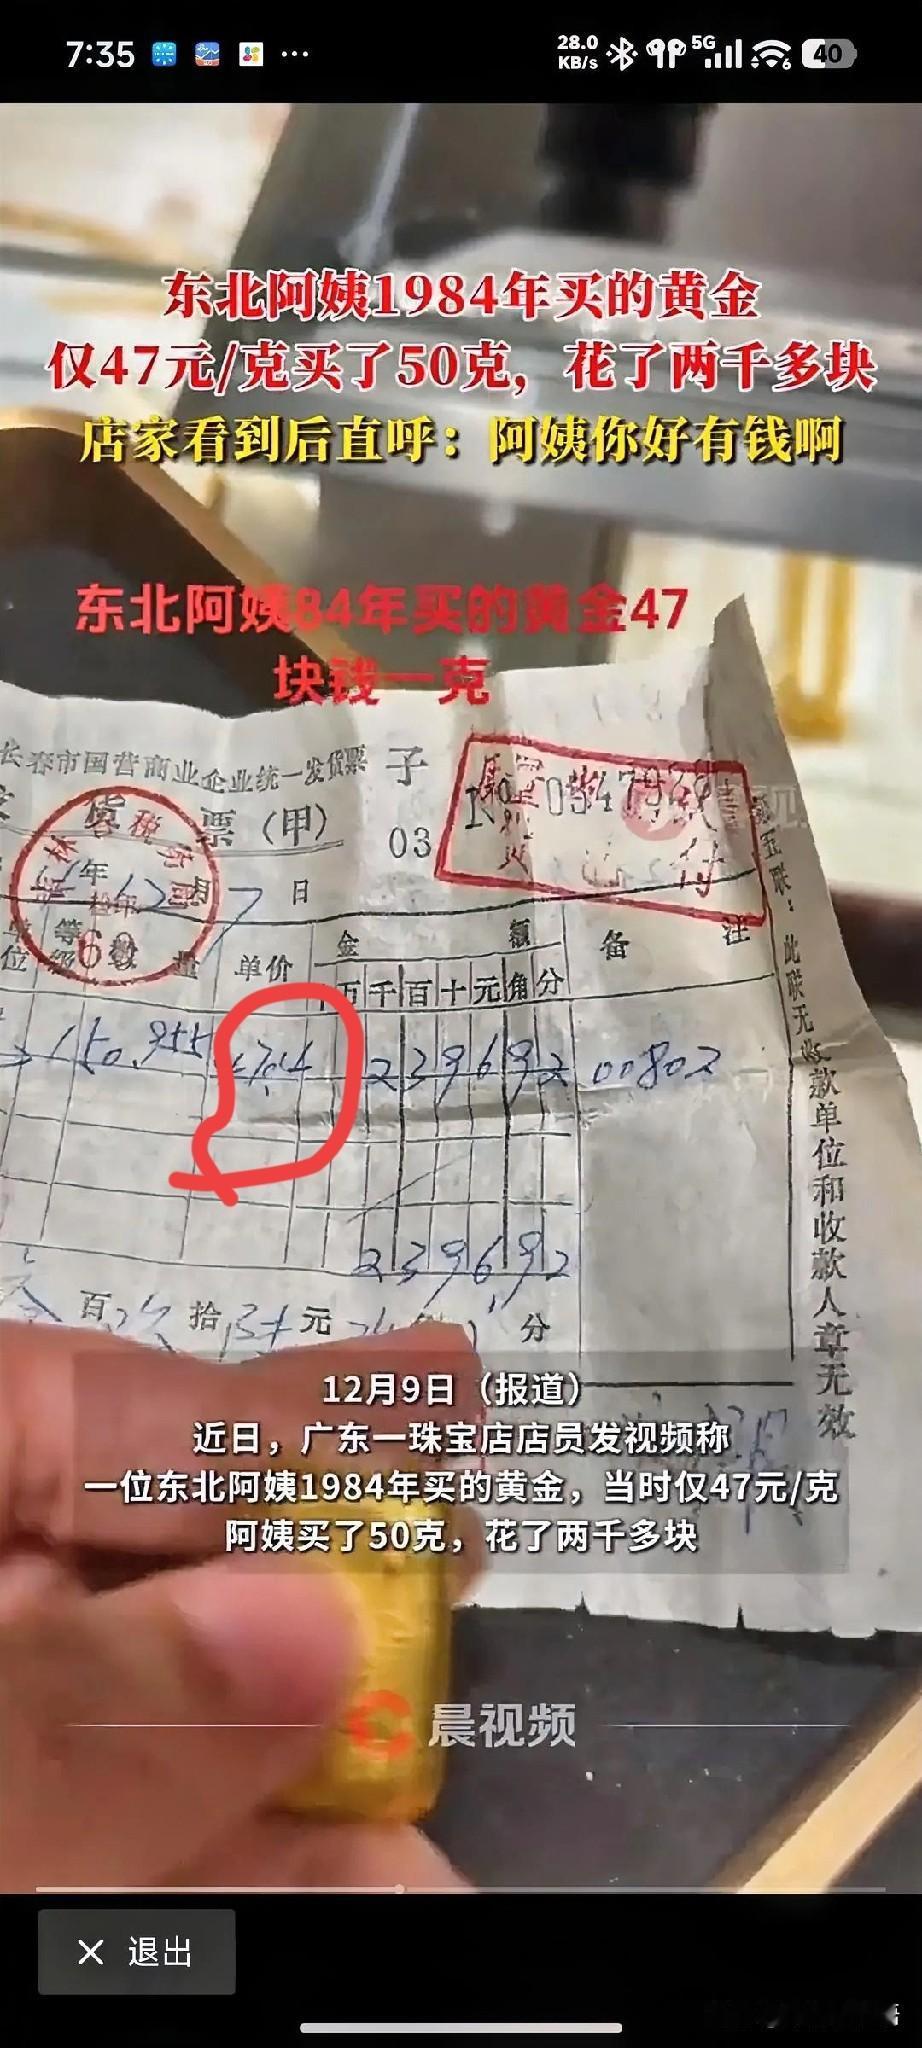 7:35
28.0 KB/s
5G
40
东北阿姨1984年买的黄金
仅47元/克买了50克，花了两千多块
店家看到后直呼：阿姨你好有钱啊
东北阿姨84年买的黄金47
块钱一克
长春市国营商业企业统一发货票
子
票（甲）
03
年
7 日
单价
金 额
万千百十元角分
备 注
第五联：此联无收款单位和收款人章无效
50.955
239692
00802
239692
百
拾
元
分
12月9日（报道）
近日，广东一珠宝店店员发视频称
一位东北阿姨1984年买的黄金，当时仅47元/克
阿姨买了50克，花了两千多块
晨视频
× 退出